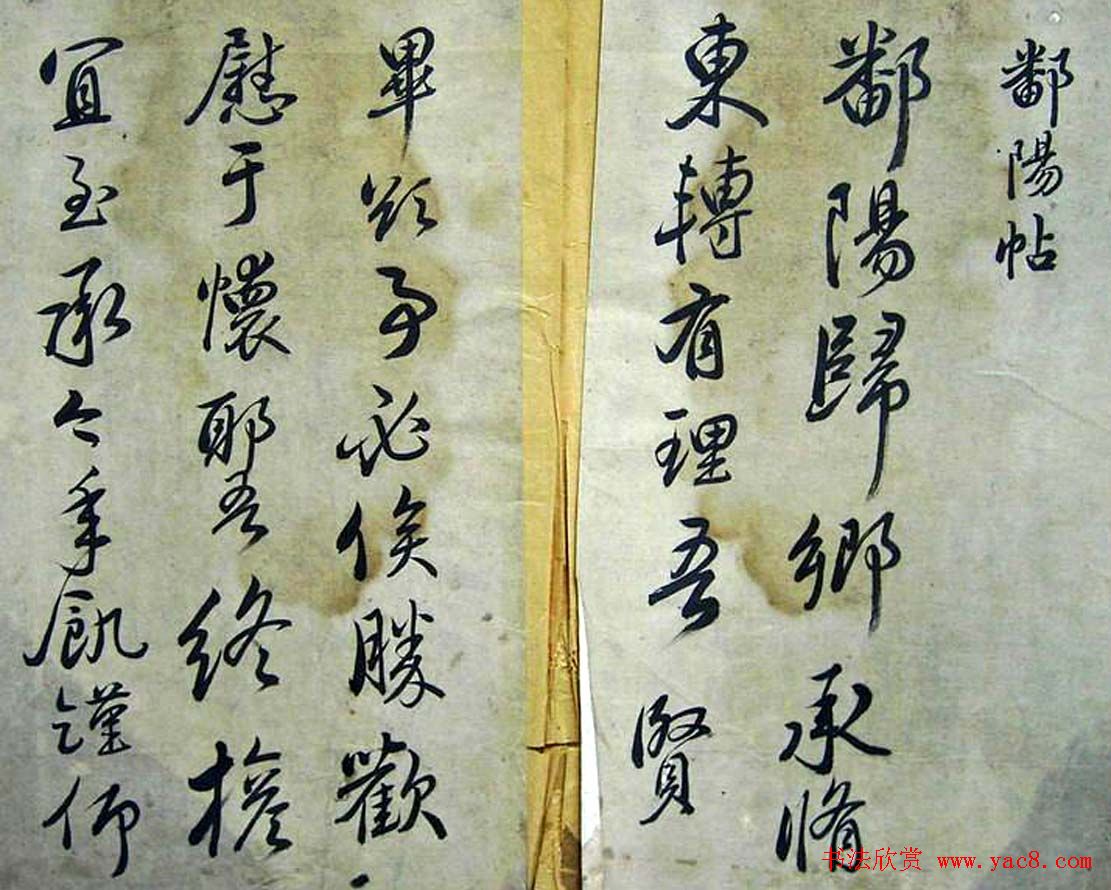 鄱陽帖
鄱陽歸鄉承脩
東轉有理吾賢
畢事必俟勝歡
慰于懷耶吾終
宜至承今年飢饉仰
书法欣赏 www.yac8.com